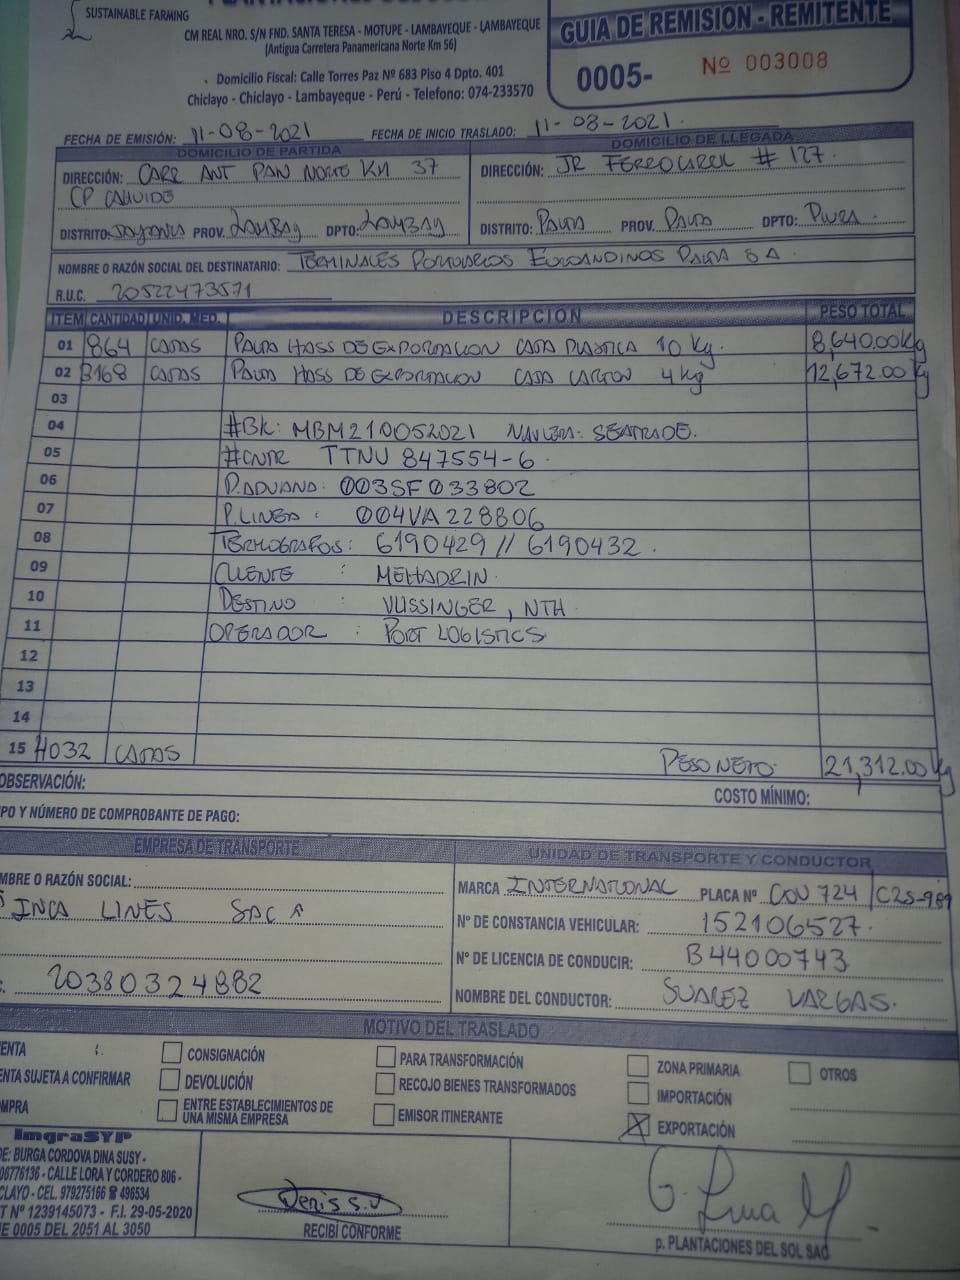 SUSTAINABLE FARMING
CM REAL NRO. S/N FND. SANTA TERESA - MOTUPE - LAMBAYEQUE - LAMBAYEQUE
(Antigua Carretera Panamericana Norte Km 56)
. Domicilio Fiscal: Calle Torres Paz Nº 683 Piso 4 Dpto. 401
Chiclayo - Chiclayo - Lambayeque - Perú - Telefono: 074-233570
GUIA DE REMISIÓN - REMITENTE
0005- Nº 003008
FECHA DE EMISIÓN: 11-08-2021 FECHA DE INICIO TRASLADO: 11-08-2021.
DOMICILIO DE PARTIDA DOMICILIO DE LLEGADA
DIRECCIÓN: CARR ANT PAN NORTE KM 37 DIRECCIÓN: JR FERROCARRIL # 127.
CP
DISTRITO: JAYANCA PROV. LAMBAY DPTO: LAMBAY DISTRITO: PAITA PROV. PAITA DPTO: PIURA.
NOMBRE O RAZÓN SOCIAL DEL DESTINATARIO: TERMINALES PORTUARIOS EUROANDINOS PAITA S A.
R.U.C. 20522473571
ITEM CANTIDAD UNID. MED. DESCRIPCION PESO TOTAL
01 864 CAJAS PALTA HASS DE EXPORTACION CAJA PLASTICA 10 Kg. 8,640.00Kg
02 3168 CAJAS PALTA HASS DE EXPORTACION CAJA CARTON 4 Kg 12,672.00 Kg
03
04 #BK: MBM210052021 NAVIERA: SEATRADE.
05 #CNTR TTNU 847554-6.
06 P.ADUANA: 003SF033802
07 P.LINEA: 004VA228806
08 TERMOGRAFOS: 6190429 // 6190432.
09 CLIENTE : MEHADRIN.
10 DESTINO : VLISSINGER, NTH.
11 OPERADOR : PORT LOGISTICS
12
13
14
15 4032 CAJAS PESO NETO. 21,312.00 Kg
OBSERVACIÓN:
COSTO MÍNIMO:
PO Y NÚMERO DE COMPROBANTE DE PAGO:
EMPRESA DE TRANSPORTE UNIDAD DE TRANSPORTE Y CONDUCTOR
MBRE O RAZÓN SOCIAL: MARCA INTERNATIONAL PLACA Nº COU 724 / C2S-989
INCA LINES SAC Nº DE CONSTANCIA VEHICULAR: 152106527.
Nº DE LICENCIA DE CONDUCIR: B44000743
20380324882 NOMBRE DEL CONDUCTOR: SUAREZ VARGAS.
MOTIVO DEL TRASLADO
ENTA CONSIGNACIÓN PARA TRANSFORMACIÓN ZONA PRIMARIA OTROS
ENTA SUJETA A CONFIRMAR DEVOLUCIÓN RECOJO BIENES TRANSFORMADOS IMPORTACIÓN
MPRA ENTRE ESTABLECIMIENTOS DE UNA MISMA EMPRESA EMISOR ITINERANTE X EXPORTACIÓN
ImgraSYP
DE: BURGA CORDOVA DINA SUSY -
06776136 - CALLE LORA Y CORDERO 806 -
CLAYO - CEL. 979275166 ☎ 496534
T Nº 1239145073 - F.I. 29-05-2020
IE 0005 DEL 2051 AL 3050
Denis S.V
RECIBÍ CONFORME
G. Luna M.
p. PLANTACIONES DEL SOL SAC